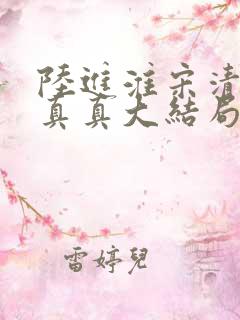 陸進淮宋清
真真大結局
雷婷兒